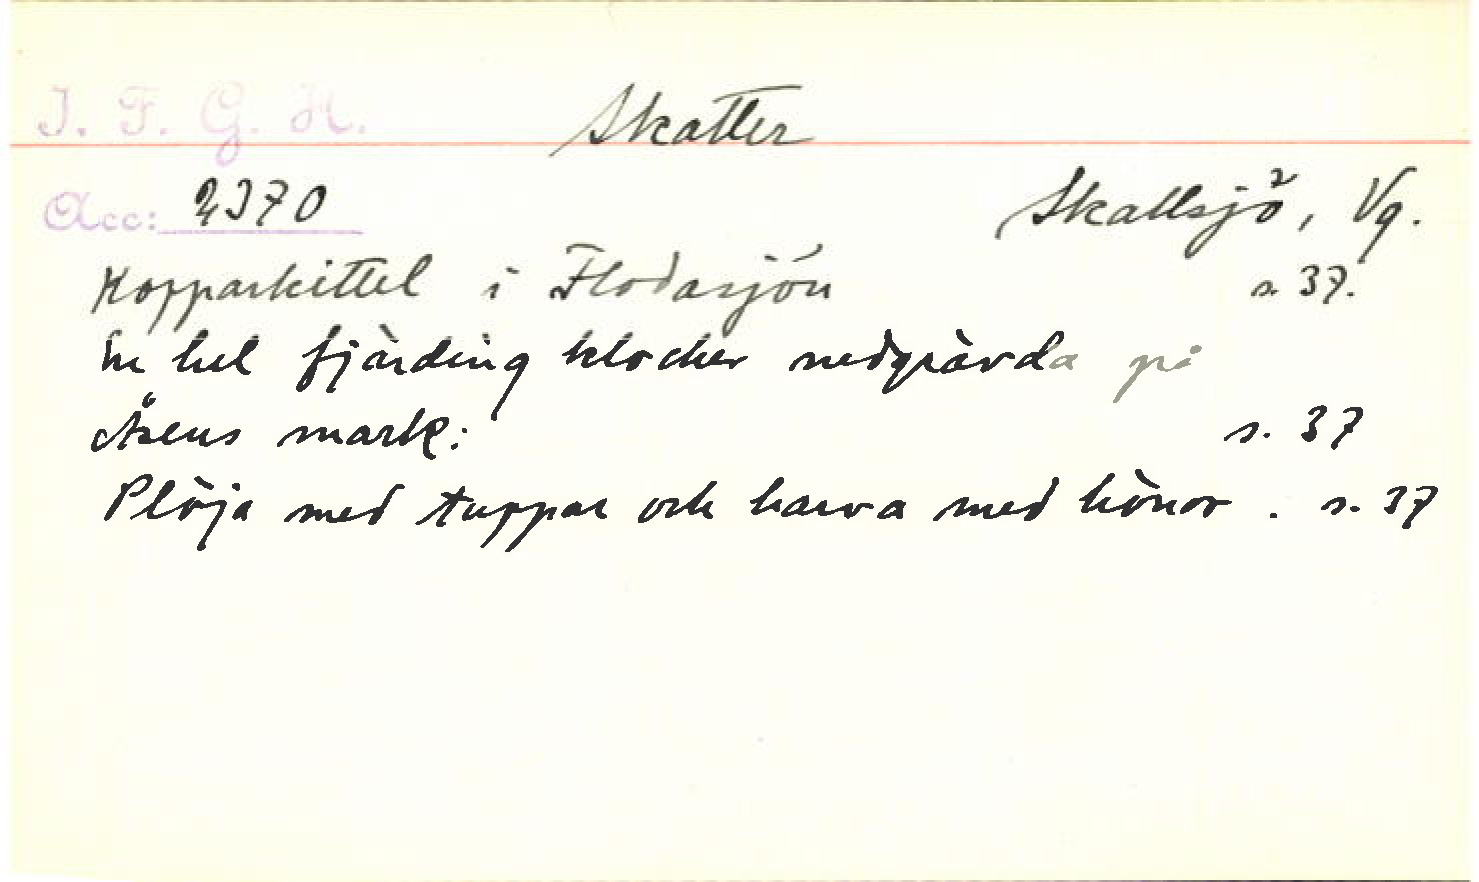 I. F. G. H.
Skatter
Acc: 2370
Skallsjö, Vg.
Kopparkittel i Flodasjön s. 37.
En hel fjärding klockor nedgrävda på
Åsens mark: s. 37
Plöja med tuppar och harva med hönor. s. 37